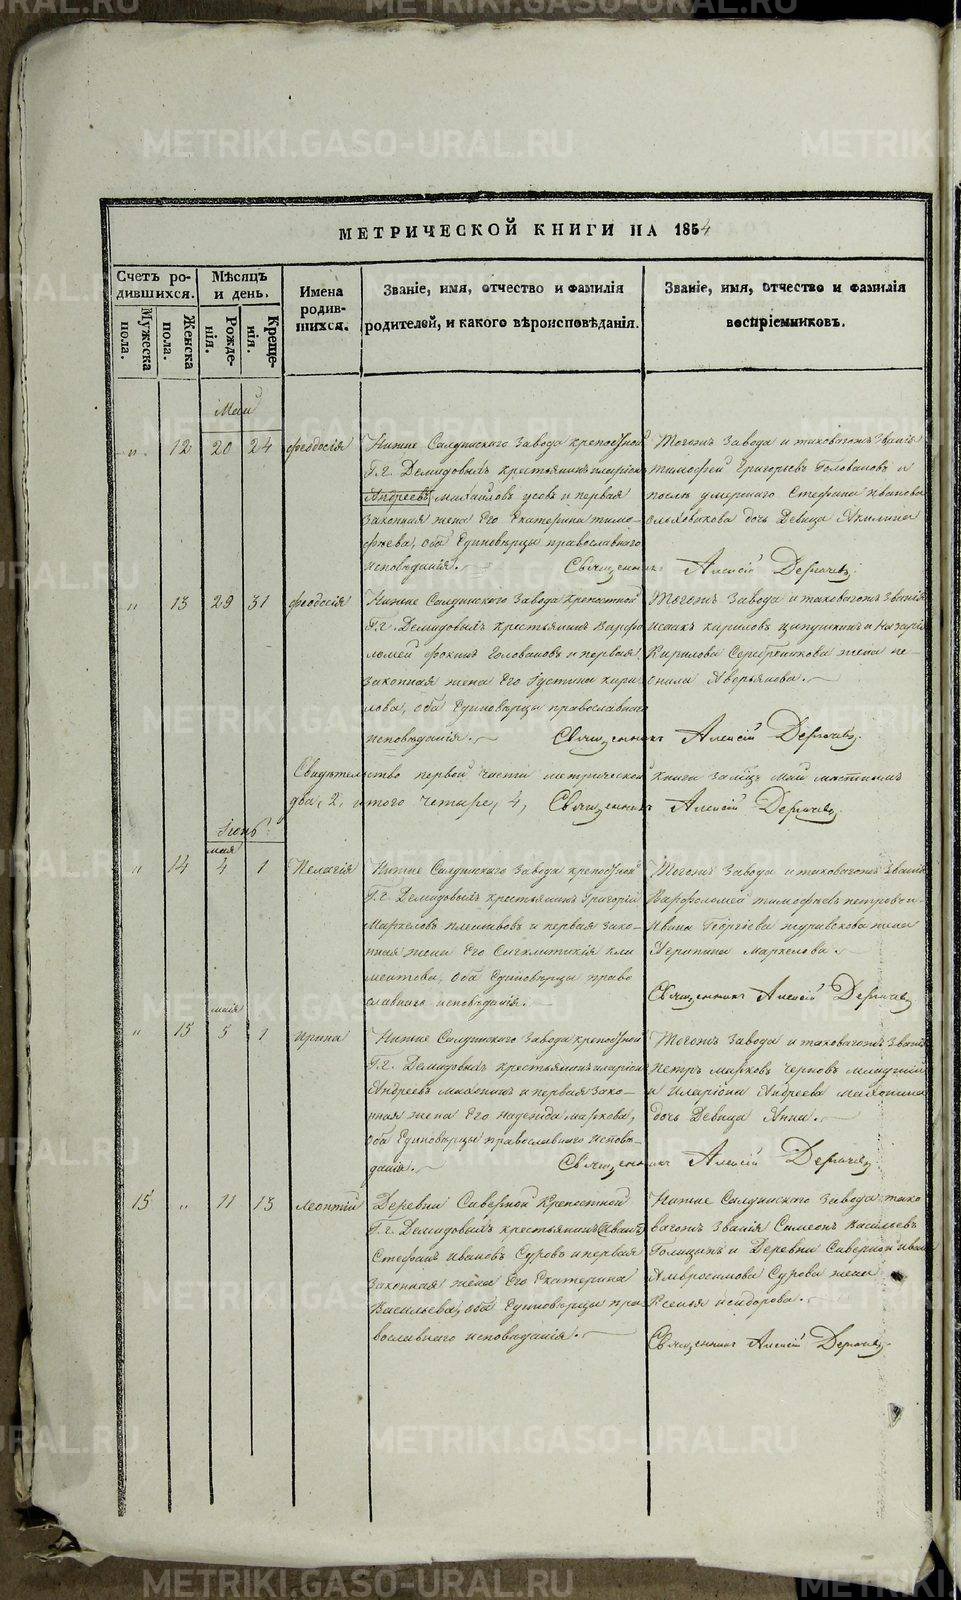 МЕТРИЧЕСКОЙ КНИГИ НА 1854
Счетъ ро-
дившихся.
Мужеска
пола.
Женска
пола.
Мѣсяцъ
и день.
Рожде-
нія.
Креще-
нія.
Имена
родив-
шихся.
Званіе, имя, отчество и фамилія
родителей, и какого вѣроисповѣданія.
Званіе, имя, отчество и фамилія
воспріемниковъ.
Май
" 12 20 24 Феодосія
Нижне Салдинскаго Завода крепостной
Г.г. Демидовыхъ крестьянинъ
Андреевъ Михайловъ Усовъ и первая
законная жена Его Екатерина Тимо-
феева, оба Единовѣрцы православнаго
исповѣданія.
Тогожъ Завода и таковагожъ Званія
Тимофей Григорьевъ Головановъ и
послѣ умершаго Стефана Иванова
дочь Девица Акилина
Священникъ Алексій Дерягинъ
" 13 29 31 Феодосія
Нижне Салдинскаго Завода крепостной
Г.г. Демидовыхъ крестьянинъ Варфо
ломей Фокинъ Головановъ и первая
законная жена Его Устина Кири
лова, оба Единовѣрцы православнаго
исповѣданія.
Тогожъ Завода и таковагожъ Званія
Исаакъ Кириловъ Ципушкинъ и Назарія
Кирилова Серебреникова жена Не-
онила Аверьянова.
Священникъ Алексій
Свидѣтельство первой части метрической книги за мѣц. Май мѣстнымъ
два, 2, итого четыре, 4, Священникъ Алексій
Іюнь
мая
" 14 4 1 Пелагія
Нижне Салдинскаго Завода крепостной
Г.г. Демидовыхъ крестьянинъ Григорій
Маркеловъ и первая зако-
нная жена Его Сигклитикія Кли
ментова, оба Единовѣрцы право
славнаго исповѣданія.
Тогожъ Завода и таковагожъ Званія
Варфоломей Тимофеевъ
Ивана Георгіева Журавскова жена
Маркелова.
Священникъ Алексій
маія
" 15 5 1 Ирина
Нижне Салдинскаго Завода крепостной
Г.г. Демидовыхъ крестьянинъ Иларіонъ
Андреевъ Махонинъ и первая зако-
нная жена Его Надежда Маркова,
оба Единовѣрцы православнаго исповѣ-
данія.
Тогожъ Завода и таковагожъ Званія
Петръ Марковъ Черновъ младшій
и Иларіона Андреева Махонина
дочь Девица Анна.
Священникъ Алексій
15 " 11 13 Леонтій
Деревни Северной Крепостной
Г.г. Демидовыхъ крестьянинъ (Иванъ)
Стефанъ Ивановъ Суровъ и первая
законная жена Его Екатерина
Васильева, оба Единовѣрцы пра
вославнаго исповѣданія.
Нижне Салдинскаго Завода тако
вагожъ Званія Симеонъ Васильевъ
Голицынъ и Деревни Северной Ивана
Амвросимова Сурова жена
Ксенья Исидорова.
Священникъ Алексій
METRIKI.GASO-URAL.RU